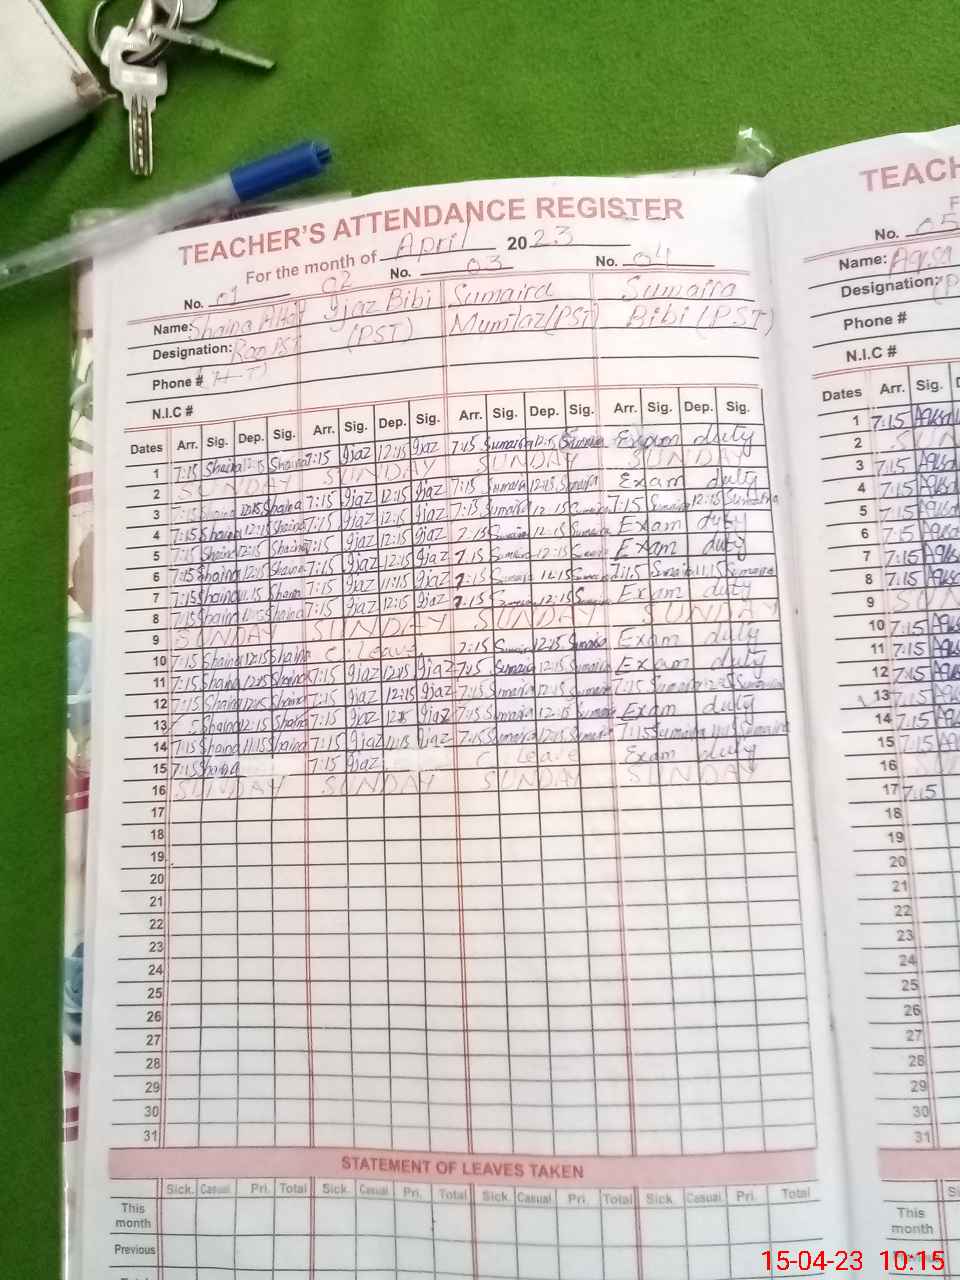 TEACHER'S ATTENDANCE REGISTER
For the month of April 2023
No. 01 02 No. 03 No. 04
Name: Shaina Ijaz Bibi Sumaira Sumaira
Designation: PST (PST) Mumtaz (PST) Bibi (PST)
Phone # (H-T)
N.I.C #
Dates Arr. Sig. Dep. Sig. Arr. Sig. Dep. Sig. Arr. Sig. Dep. Sig. Arr. Sig. Dep. Sig.
1 7:15 Shaina 12:15 Shaina 7:15 Ijaz 12:15 Ijaz 7:15 Sumaira 12:15 Sumaira Exam duty
2 SUNDAY SUNDAY SUNDAY SUNDAY
3 7:15 Shaina 12:15 Shaina 7:15 Ijaz 12:15 Ijaz 7:15 Sumaira 12:15 Sumaira Exam duty
4 7:15 Shaina 12:15 Shaina 7:15 Ijaz 12:15 Ijaz 7:15 Sumaira 12:15 Sumaira 7:15 Sumaira 12:15 Sumaira
5 7:15 Shaina 12:15 Shaina 7:15 Ijaz 12:15 Ijaz 7:15 Sumaira 12:15 Sumaira Exam duty
6 7:15 Shaina 12:15 Shaina 7:15 Ijaz 12:15 Ijaz 7:15 Sumaira 12:15 Exam duty
7 7:15 Shaina 11:15 Shaina 7:15 Ijaz 11:15 Ijaz 7:15 Sumaira 11:15 Sumaira 7:15 Sumaira 11:15 Sumaira
8 7:15 Shaina 12:15 Shaina 7:15 Ijaz 12:15 Ijaz 7:15 12:15 Exam duty
9 SUNDAY SUNDAY SUNDAY SUNDAY
10 7:15 Shaina 12:15 Shaina C. Leave 7:15 Sumaira 12:15 Sumaira Exam duty
11 7:15 Shaina 12:15 Shaina 7:15 Ijaz 12:15 Ijaz 7:15 Sumaira 12:15 Sumaira Exam duty
12 7:15 Shaina 12:15 Shaina 7:15 Ijaz 12:15 Ijaz 7:15 Sumaira 12:15 Sumaira 7:15 Sumaira 12:15 Sumaira
13 Shaina 12:15 Shaina 7:15 Ijaz 12:15 Ijaz 7:15 Sumaira 12:15 Sumaira Exam duty
14 7:15 Shaina 11:15 Shaina 7:15 Ijaz 11:15 Ijaz 7:15 Sumaira Sumaira 7:15 Sumaira 11:15 Sumaira
15 7:15 Shaina 7:15 Ijaz C. Leave Exam duty
16 SUNDAY SUNDAY SUNDAY SUNDAY
17
18
19
20
21
22
23
24
25
26
27
28
29
30
31
STATEMENT OF LEAVES TAKEN
Sick. Casual Pri. Total Sick. Casual Pri. Total Sick. Casual Pri. Total Sick. Casual Pri. Total
This month
Previous
TEACH
No. 05
Name: Aqsa
Designation:
Phone #
N.I.C #
Dates Arr. Sig.
1 7:15 Aqsa
2
3 7:15 Aqsa
4 7:15 Aqsa
5 7:15 Aqsa
6 7:15 Aqsa
7 7:15 Aqsa
8 7:15 Aqsa
9
10 7:15 Aqsa
11 7:15 Aqsa
12 7:15 Aqsa
13 7:15 Aqsa
14 7:15 Aqsa
15 7:15 Aqsa
16
17 7:15
18
19
20
21
22
23
24
25
26
27
28
29
30
31
This month
15-04-23 10:15